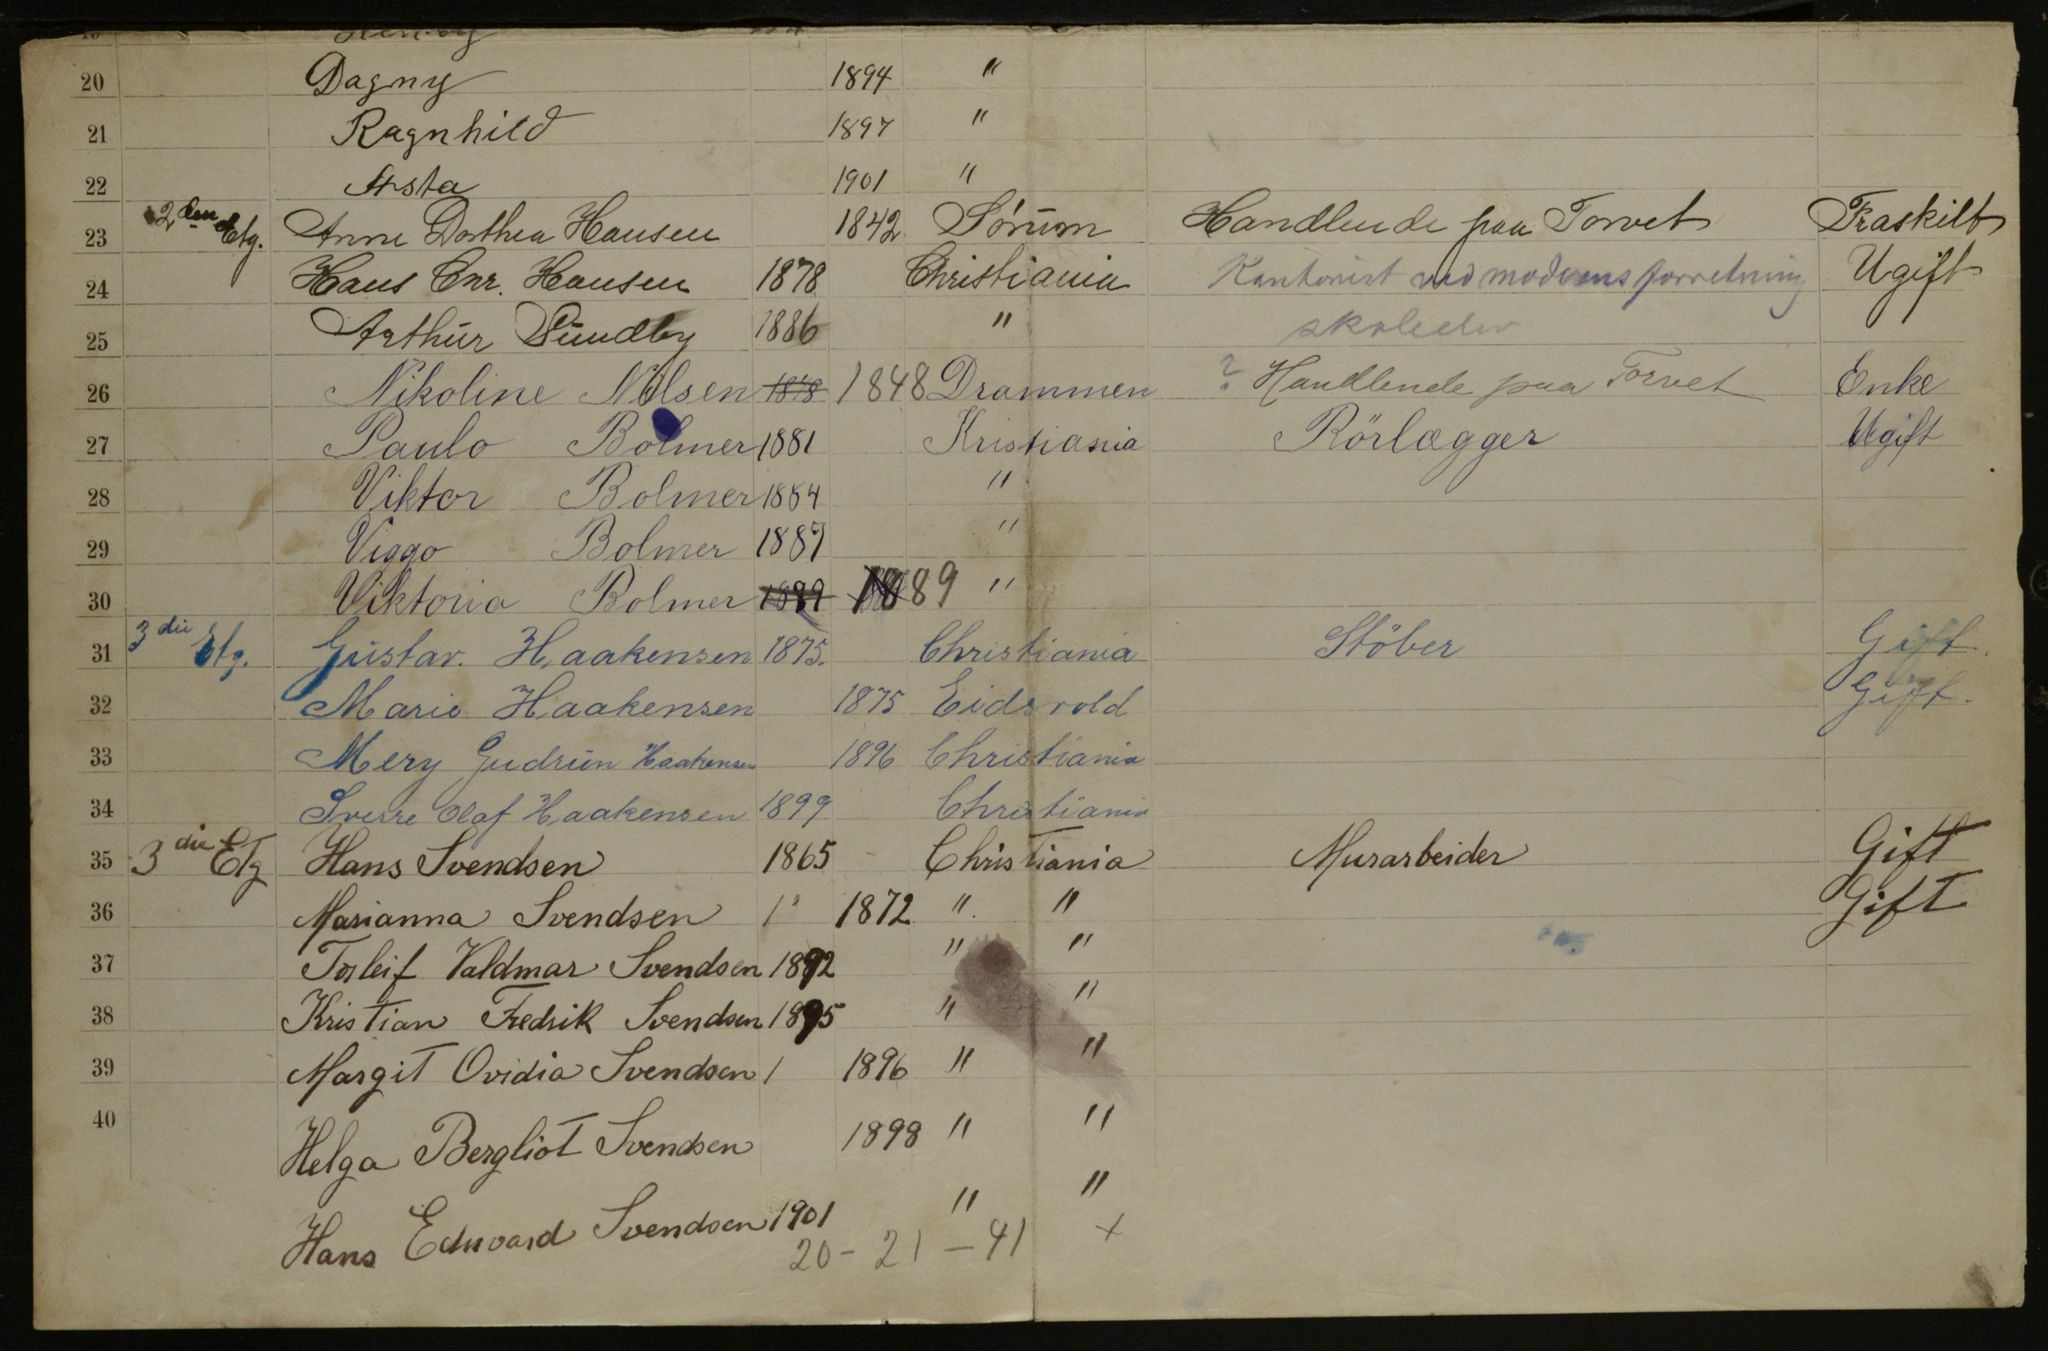 20 Dagny 1894 "
21 Ragnhild 1897 "
22 Asta 1901 "
23 2den Etg. Anne Dorthea Hansen 1842 Sørum Handlende paa Torvet Fraskilt
24 Hans Chr. Hansen 1878 Christiania Kontorist ved moderens forretning Ugift
25 Arthur Sundby 1886 " skoleelev
26 Nikoline Nilsen 1848 1848 Drammen ? Handlende paa Torvet Enke
27 Paulo Bolmer 1881 Kristiania Rörlægger Ugift
28 Viktor Bolmer 1884 "
29 Viggo Bolmer 1887 "
30 Viktoria Bolmer 1889 1889 "
31 3die Etg. Gustav. Haakensen 1875. Christiania Stöber Gift.
32 Marie Haakensen 1875 Eidsvold Gift.
33 Mery Gudrun Haakensen 1896 Christiania
34 Sverre Olaf Haakensen 1899 Christiania
35 3die Etg Hans Svendsen 1865 Christiania Murarbeider Gift
36 Marianna Svendsen 1 1872 " " Gift
37 Torleif Valdmar Svendsen 1892 " "
38 Kristian Fredrik Svendsen 1895 " "
39 Margit Ovidia Svendsen 1 1896 " "
40 Helga Bergliot Svendsen 1898 " "
Hans Eduvard Svendsen 1901 " "
20 - 21 - 41 x